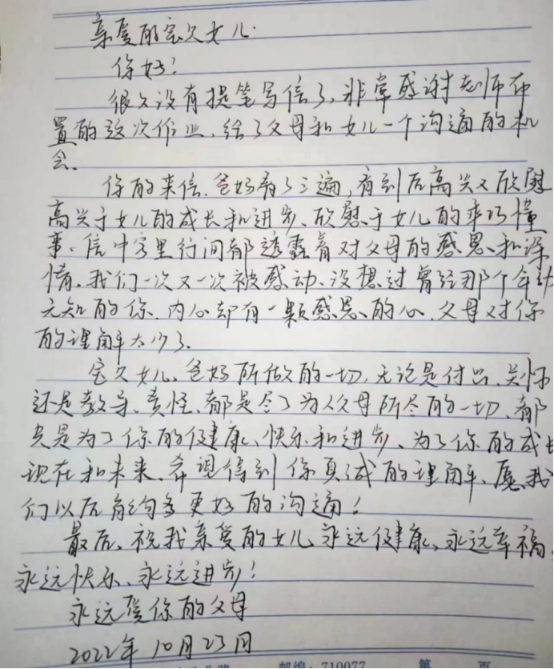 亲爱的宝贝女儿:
你好!
很久没有提笔写信了,非常感谢老师布
置的这次作业,给了父母和女儿一个沟通的机
会。
你的来信,爸妈看了三遍,看到后高兴又欣慰
高兴于女儿的成长和进步,欣慰于女儿的乖巧懂
事。信中字里行间都透露着对父母的感恩和深
情。我们一次又一次被感动、没想过曾经那个年幼
无知的你,内心却有一颗感恩的心,父母对你
的理解太少了。
宝贝女儿,爸妈所做的一切,无论是付出、关怀
还是教导、责怪、都是尽了为人父母所尽的一切,都
只是为了你的健康、快乐和进步、为了你的成长
现在和未来。希望得到你真诚的理解,愿我
们以后能够有更好的沟通!
最后、祝我亲爱的女儿永远健康,永远幸福、
永远快乐、永远进步!
永远爱你的父母
2022年10月23日
邮编:710077 第 页